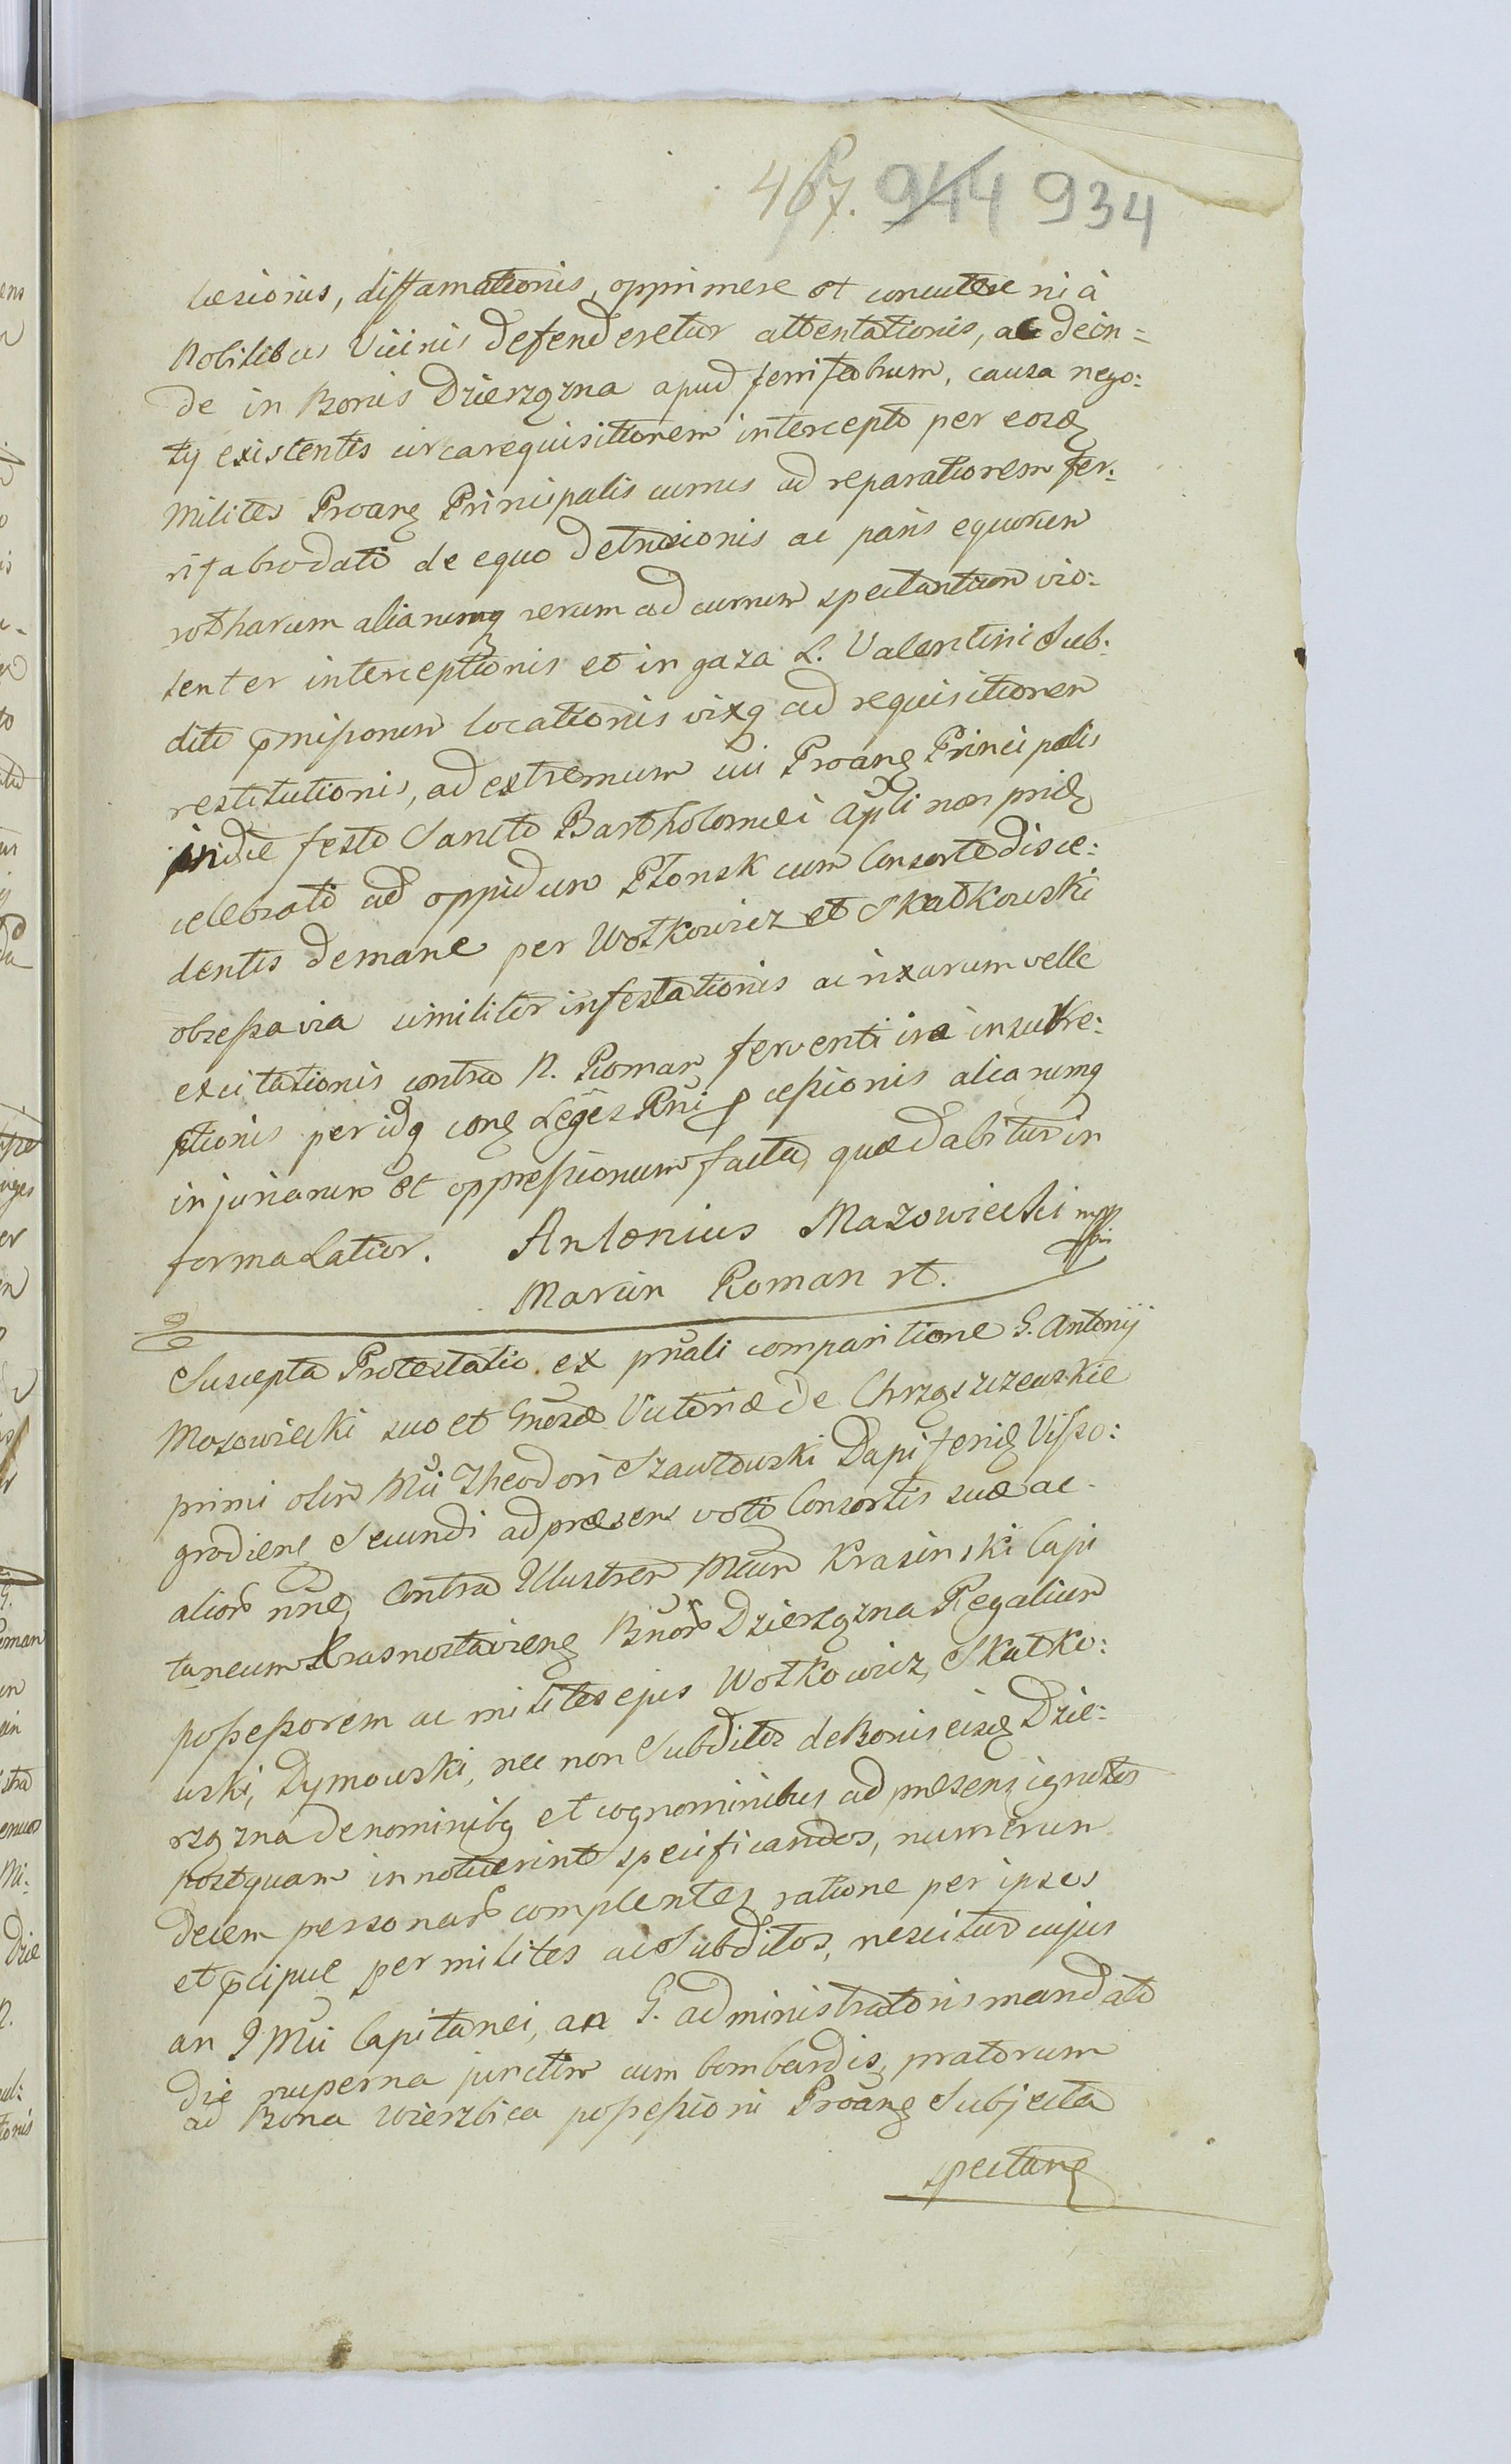 467. 944 934
læsionis, diffamationis, opprimere et concutere ni à
Nobilibus Vicinis defenderetur attentationis, ac dein=
de in Bonis Dzierzązna apud ferrifabrum, causa nego:
tÿ existentis circa requisitionem intercepto per eosd
Milites Proang Principalis currus ad reparationem fer:
rifabro dati de equo detrusionis ac paris equorum
rotharum aliarumq rerum ad currum spectantium vio:
lenter interceptionis et in gaza L. Valentini Sub:
diti pmissorum locationis vixq ad requisitionem
restitutionis, ad extremum cui Proang Principalis
in die festo Sancto Bartholomæi Apli non prid
celebrati ad oppidum Płonsk cum Consorte disce:
dentis de mane per Wotkowicz et Skatkowski
obsessa via similiter infestationis ac rixarum velle
excitationis contra N. Roman ferventi ira insurre:
ctionis per idq cong Leges Rni p cessionis aliarumq
injuriarum et oppressionum facta, quæ dabitur in
forma Latior. Antonius Mazowiecki mpp
Marcin Roman rt.
Suscepta Protestatio ex prnali comparitione G. Antonij
Mazowiecki suo et Gnosæ Victoriæ de Chrząszczewskie
primi olim Mci Theodori Szawłowski Dapiferid Visso:
grodieng Secundi ad præsens voto Consortis suæ ac
alior nne, Contra Illustrem Mcum Krasinski Capi
taneum Krasnostavieng Bnor Dzierzązna Regalium
possessorem ac milites ejus Wotkowicz, Skatko:
wski, Dymowski, nec non Subditos de Bonis eisd Dzie:
rzązna de nominibq et cognominibus ad præsens ignotos
postquam innotuerint specificandos, numerum
decem personar complentes ratione per ipsos
et pcipue per milites ac Subditos, nescitur cujus
an J Mci Capitanei, an G. administratoris mandato
die nuperna junctim cum bombardis, pratorum
ad Bona Wierzbica possessioni Proang Subjecta
spectang